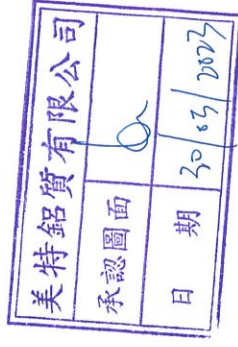 美特鋁質有限公司
承認圖面
日期 30/03/2023